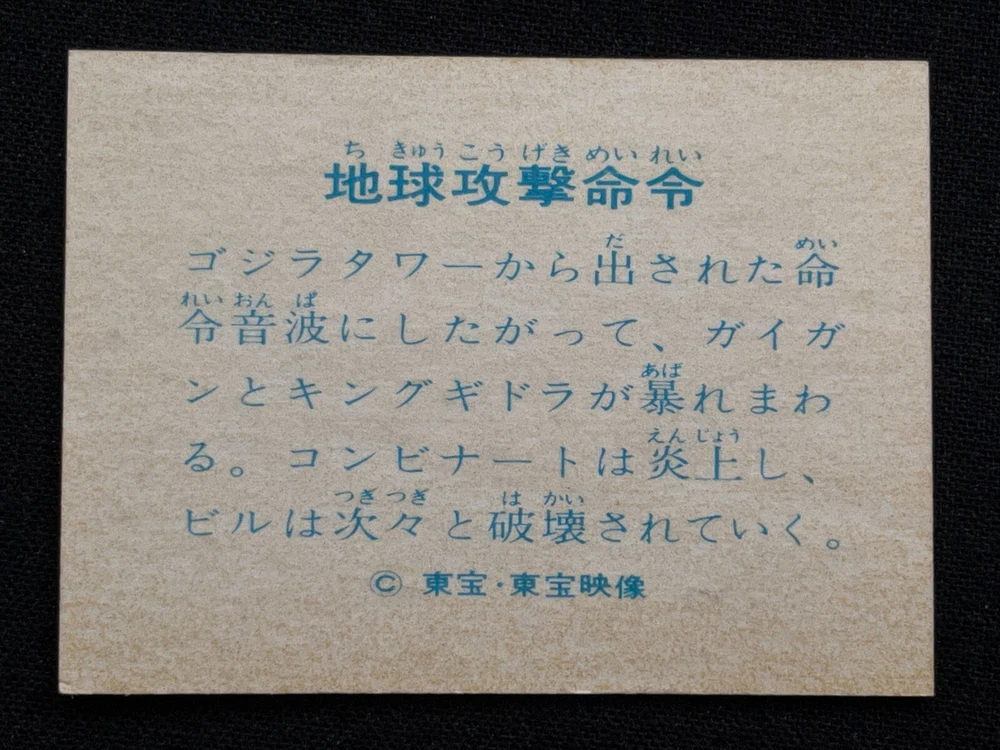 ち きゅう こう げき めい れい
地球攻撃命令
だ めい
ゴジラタワーから出された命
れい おん ぱ
令音波にしたがって、ガイガ
あば
ンとキングギドラが暴れまわ
えん じょう
る。コンビナートは炎上し、
つぎ つぎ は かい
ビルは次々と破壊されていく。
© 東宝・東宝映像